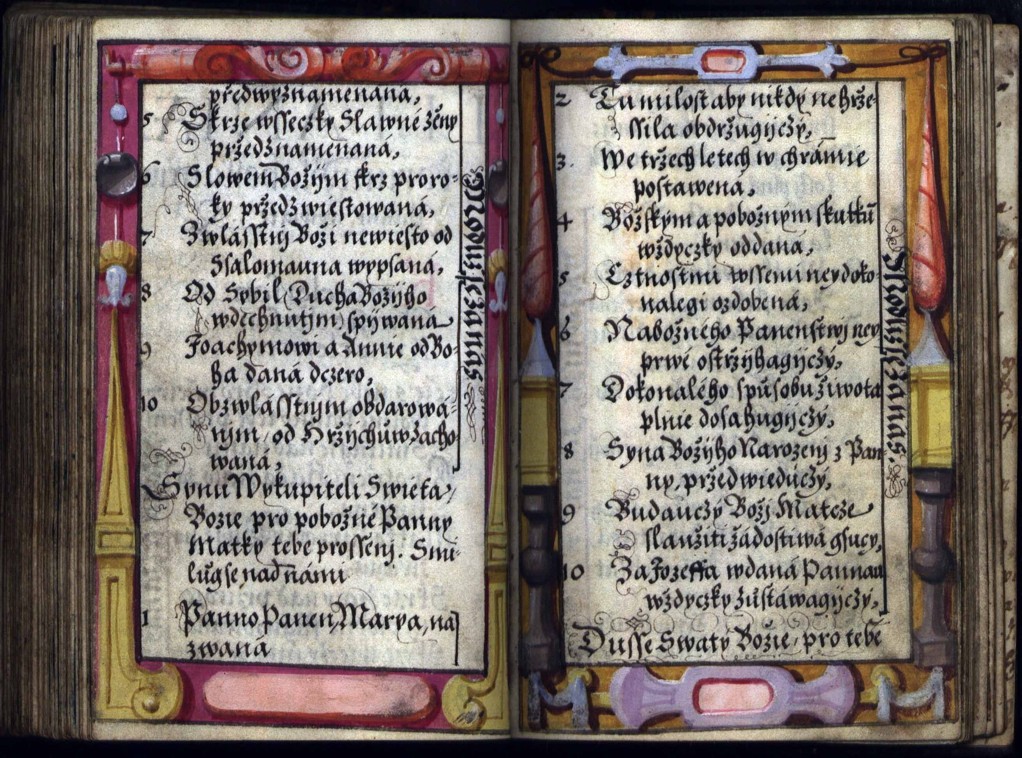 předwyznamenaná,
5 Skrze wssecky Slawné ženy
przedznamenaná,
6 Slowem Božijm skrz proro-
ky przedzwiestowaná,
7 Zwlásstnj Boži newiesto od
Ssalomauna wypsaná,
8 Od Sybil Ducha Božijho
wdechnutjm spijwaná
9 Joachymowi a Annie od Bo-
ha daná dczero,
10 Obzwlásstnjm obdarowá-
nijm, od Hržjchůw zacho
waná,
Synu Wykupiteli Swieta,
Bozie pro pobožné Panny
Matky tebe prossenj. Smi-
lůg se nad námi
1 Panno Panen, Marya, na
zwaná
Modli se za nás
2 Tu milost aby nikdy nehrže-
ssila obdržugijczy,
3. We tržech letech w chrámie
postawená,
4 Božským a pobožným skutků
wždyczky oddaná,
5 Cztnostmi wssemi neydoko-
nalegi ozdobená,
6 Nábožného Panenstwj ney
prwé ostržijhagijczy,
7 Dokonalého spůsobu žiwota
plnie dosahugijczy,
8 Syna Božijho Narozenj z Pan
ny, przedwieduczy,
9 Buďauczý Božj Matcze
slaužiti žádostiwá gsucy,
10 Za Jozeffa wdaná Pannau
wždyczky zůstáwagijczy,
Modli se za nás
Dusse Swatý Bozie, pro tebe